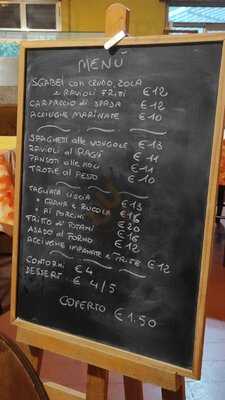 MENÙ
SGABEI con CRUDO, ZOLA
e RAVIOLI FRITI € 12
CARPACCIO di SPADA € 12
ACCIUGHE MARINATE € 10
SPAGHETI alle VONGOLE € 13
RAVIOLI al RAGÙ € 11
PANSOTI alle NOCI € 11
TROFIE al PESTO € 10
TAGLIATA LISCIA € 13
" GRANA e RUCOLA € 16
" AI PORCINI € 20
FRITO di TOTANI € 16
ASADO al FORNO € 12
ACCIUGHE IMPANATE e FRITE € 12
CONTORNI € 4
DESSERT € 4/5
COPERTO € 1.50